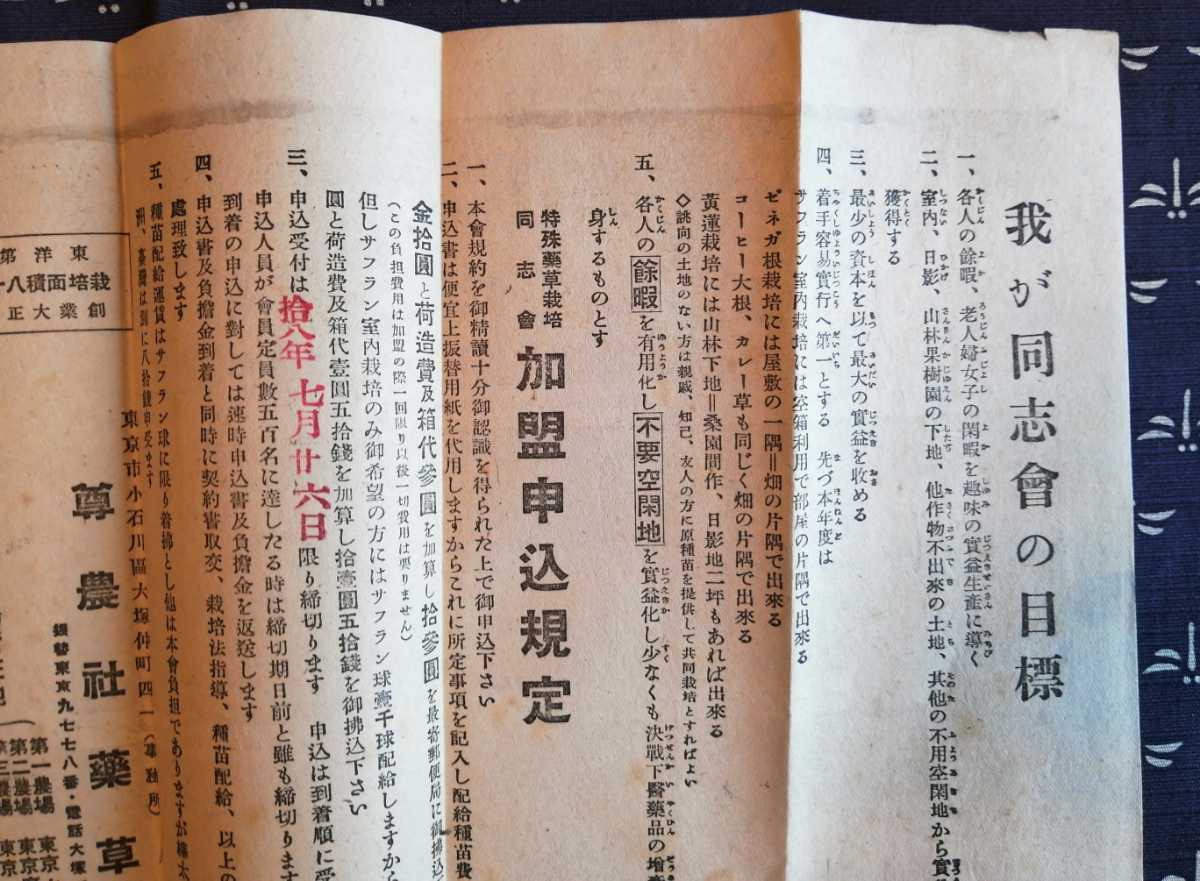 我が同志會の目標
一、各人の餘暇、老人婦女子の閑暇を趣味の實益生產に導く
二、室內、日影、山林果樹園の下地、他作物不出來の土地、其他の不用空閑地から實
獲得する
三、最少の資本を以て最大の實益を收める
四、着手容易實行へ第一とする 先づ本年度は
サフラン室內栽培には空箱利用で部屋の片隅で出來る
ゼネガ根栽培には屋敷の一隅＝畑の片隅で出來る
コーヒー大根、カレー草も同じく畑の片隅で出來る
黃蓮栽培には山林下地＝桑園間作、日影地二坪もあれば出來る
◇誂向の土地のない方は親戚、知己、友人の方に原種苗を提供して共同栽培とすればよい
五、各人の餘暇を有用化し不要空閑地を實益化し少なくも決戰下醫藥品の增產
身するものとす
特殊藥草栽培
同志會
加盟申込規定
一、本會規約を御精讀十分御認識を得られた上で御申込下さい
二、申込書は便宜上振替用紙を代用しますからこれに所定事項を記入し配給種苗費
金拾圓と荷造費及箱代參圓を加算し拾參圓を最寄郵便局に御拂込
（この負担費用は加盟の際一回限り以後一切費用は要りません）
但しサフラン室內栽培のみ御希望の方にはサフラン球壹千球配給しますから
圓と荷造費及箱代壹圓五拾錢を加算し拾壹圓五拾錢を御拂込下さい
三、申込受付は拾八年七月廿六日限り締切ります 申込は到着順に受
申込人員が會員定員數五百名に達したる時は締切期日前と雖も締切ります
到着の申込に對しては速時申込書及負擔金を返送します
四、申込書及負擔金到着と同時に契約書取交、栽培法指導、種苗配給、以上の
處理致します
五、種苗配給運賃はサフラン球に限り着拂とし他は本會負担でありますが樺太
洲、臺灣は別に八拾錢申受ます
東京市小石川區大塚仲町四一（事務所）
尊農社藥草
振替東京九七七八番・電話大塚
第一農場 東京
第二農場 東京
第三農場 東京
東洋第
栽培面積八十
創業大正